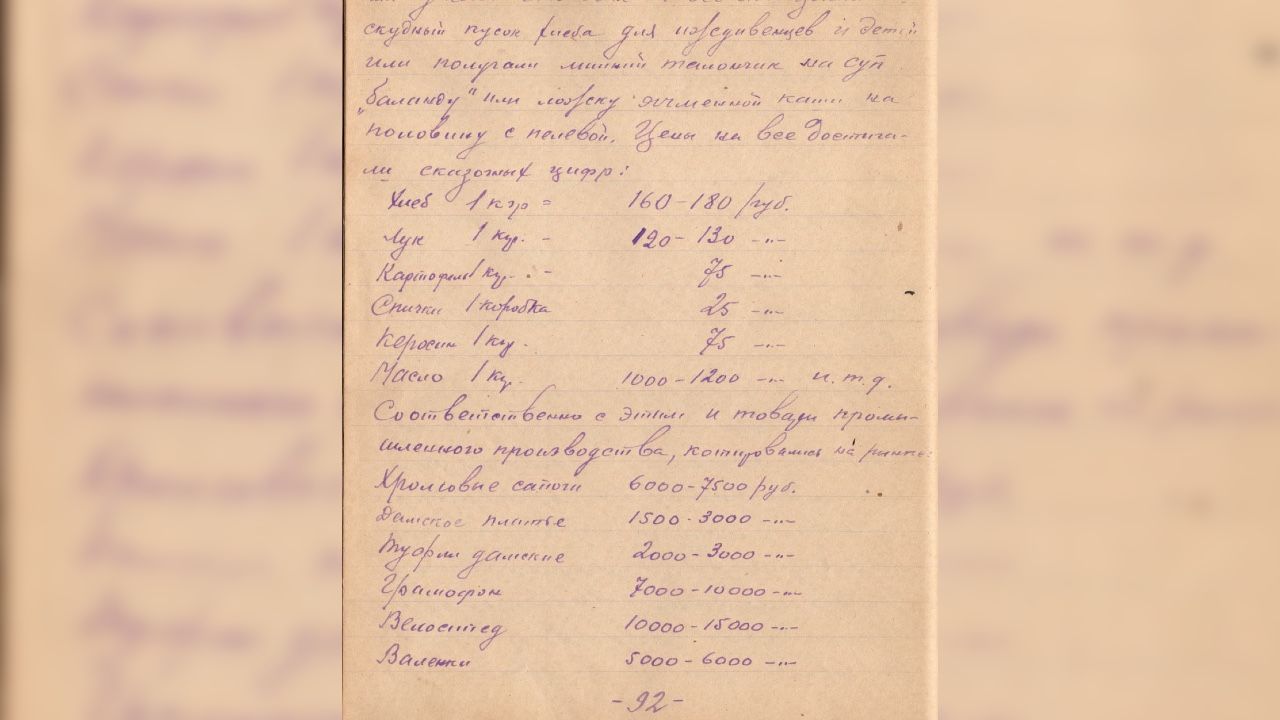 скудный кусок хлеба для иждивенцев и детей
или получали лишний талончик на суп
„баланду" или ложку ячменной каши на
половину с пелевой. Цены на все достига-
ли сказочных цифр:
Хлеб 1 кгр = 160-180 руб.
Лук 1 кгр. - 120-130 -"-
Картофель 1 кгр. - 75 -"-
Спички 1 коробка 25 -"-
Керосин 1 кгр. 75 -"-
Масло 1 кгр. 1000-1200 -"- и.т.д.
Соответственно с этим и товары промы-
шленного производства, котировались на рынке:
Хромовые сапоги 6000-7500 руб.
Дамское платье 1500-3000 -"-
Туфли дамские 2000-3000 -"-
Грамофон 7000-10000 -"-
Велосипед 10000-15000 -"-
Валенки 5000-6000 -"-
-92-